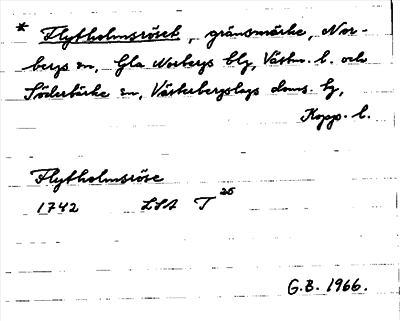 * Flytholmsröset, gränsmärke, Nor-
bergs sn, Gla Norbergs blg, Västm. l. och
Söderbärke sn, Västerbergslags doms. hg,
Kopp. l.
Flytholmsröse
1742 LSA T 26
G.B. 1966.